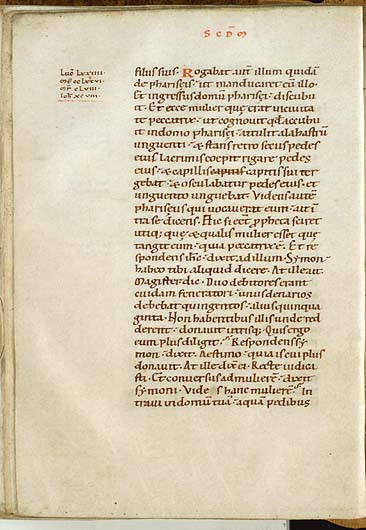 SCD̄M
Luc̄ LXXIIII
filiis suis. Rogabat aut̄ illum quidā
de phariseis · ut manducaret cū illo ·
Et ingressus domū pharisęi · discubu
it · Et ecce mulier quę erat in ciuita
te peccatrix · ut cognouit qd̄ accubu
it in domo pharisęi · attulit alabastrū
unguenti · & stans retro secus pedes
eius · lacrimis coepit rigare pedes
eius · & capillis capitis sui ter
gebat · & osculabatur pedes eius · et
unguento unguebat · Videns autem̄
phariseus qui uocauerat eum · ait ī
tra se dicens. Hic si eēt ꝓpheta sciret
utiq; quę & qualis mulier esset quę
tangit eum · quia peccatrix ē · Et re
spondens ih̄c · dixit ad illum · Symon ·
habeo tibi aliquid dicere · At ille ait ·
Magister dic · Duo debitores erant
cuidam feneratori · unus denarios
debebat quingentos · alius quinqua
ginta · Non habentibus illis unde red
derent · donauit utrisq; Quis ergo
eum plus diliget · Respondens sy
mon · dixit · Aestimo · quia is cui plus
donauit · At ille dix̄ ei · Recte iudica
sti · Et conuersus ad mulierē · dixit
symoni · Vides hanc mulierē · In
traui in domū tuā · aquam pedibus